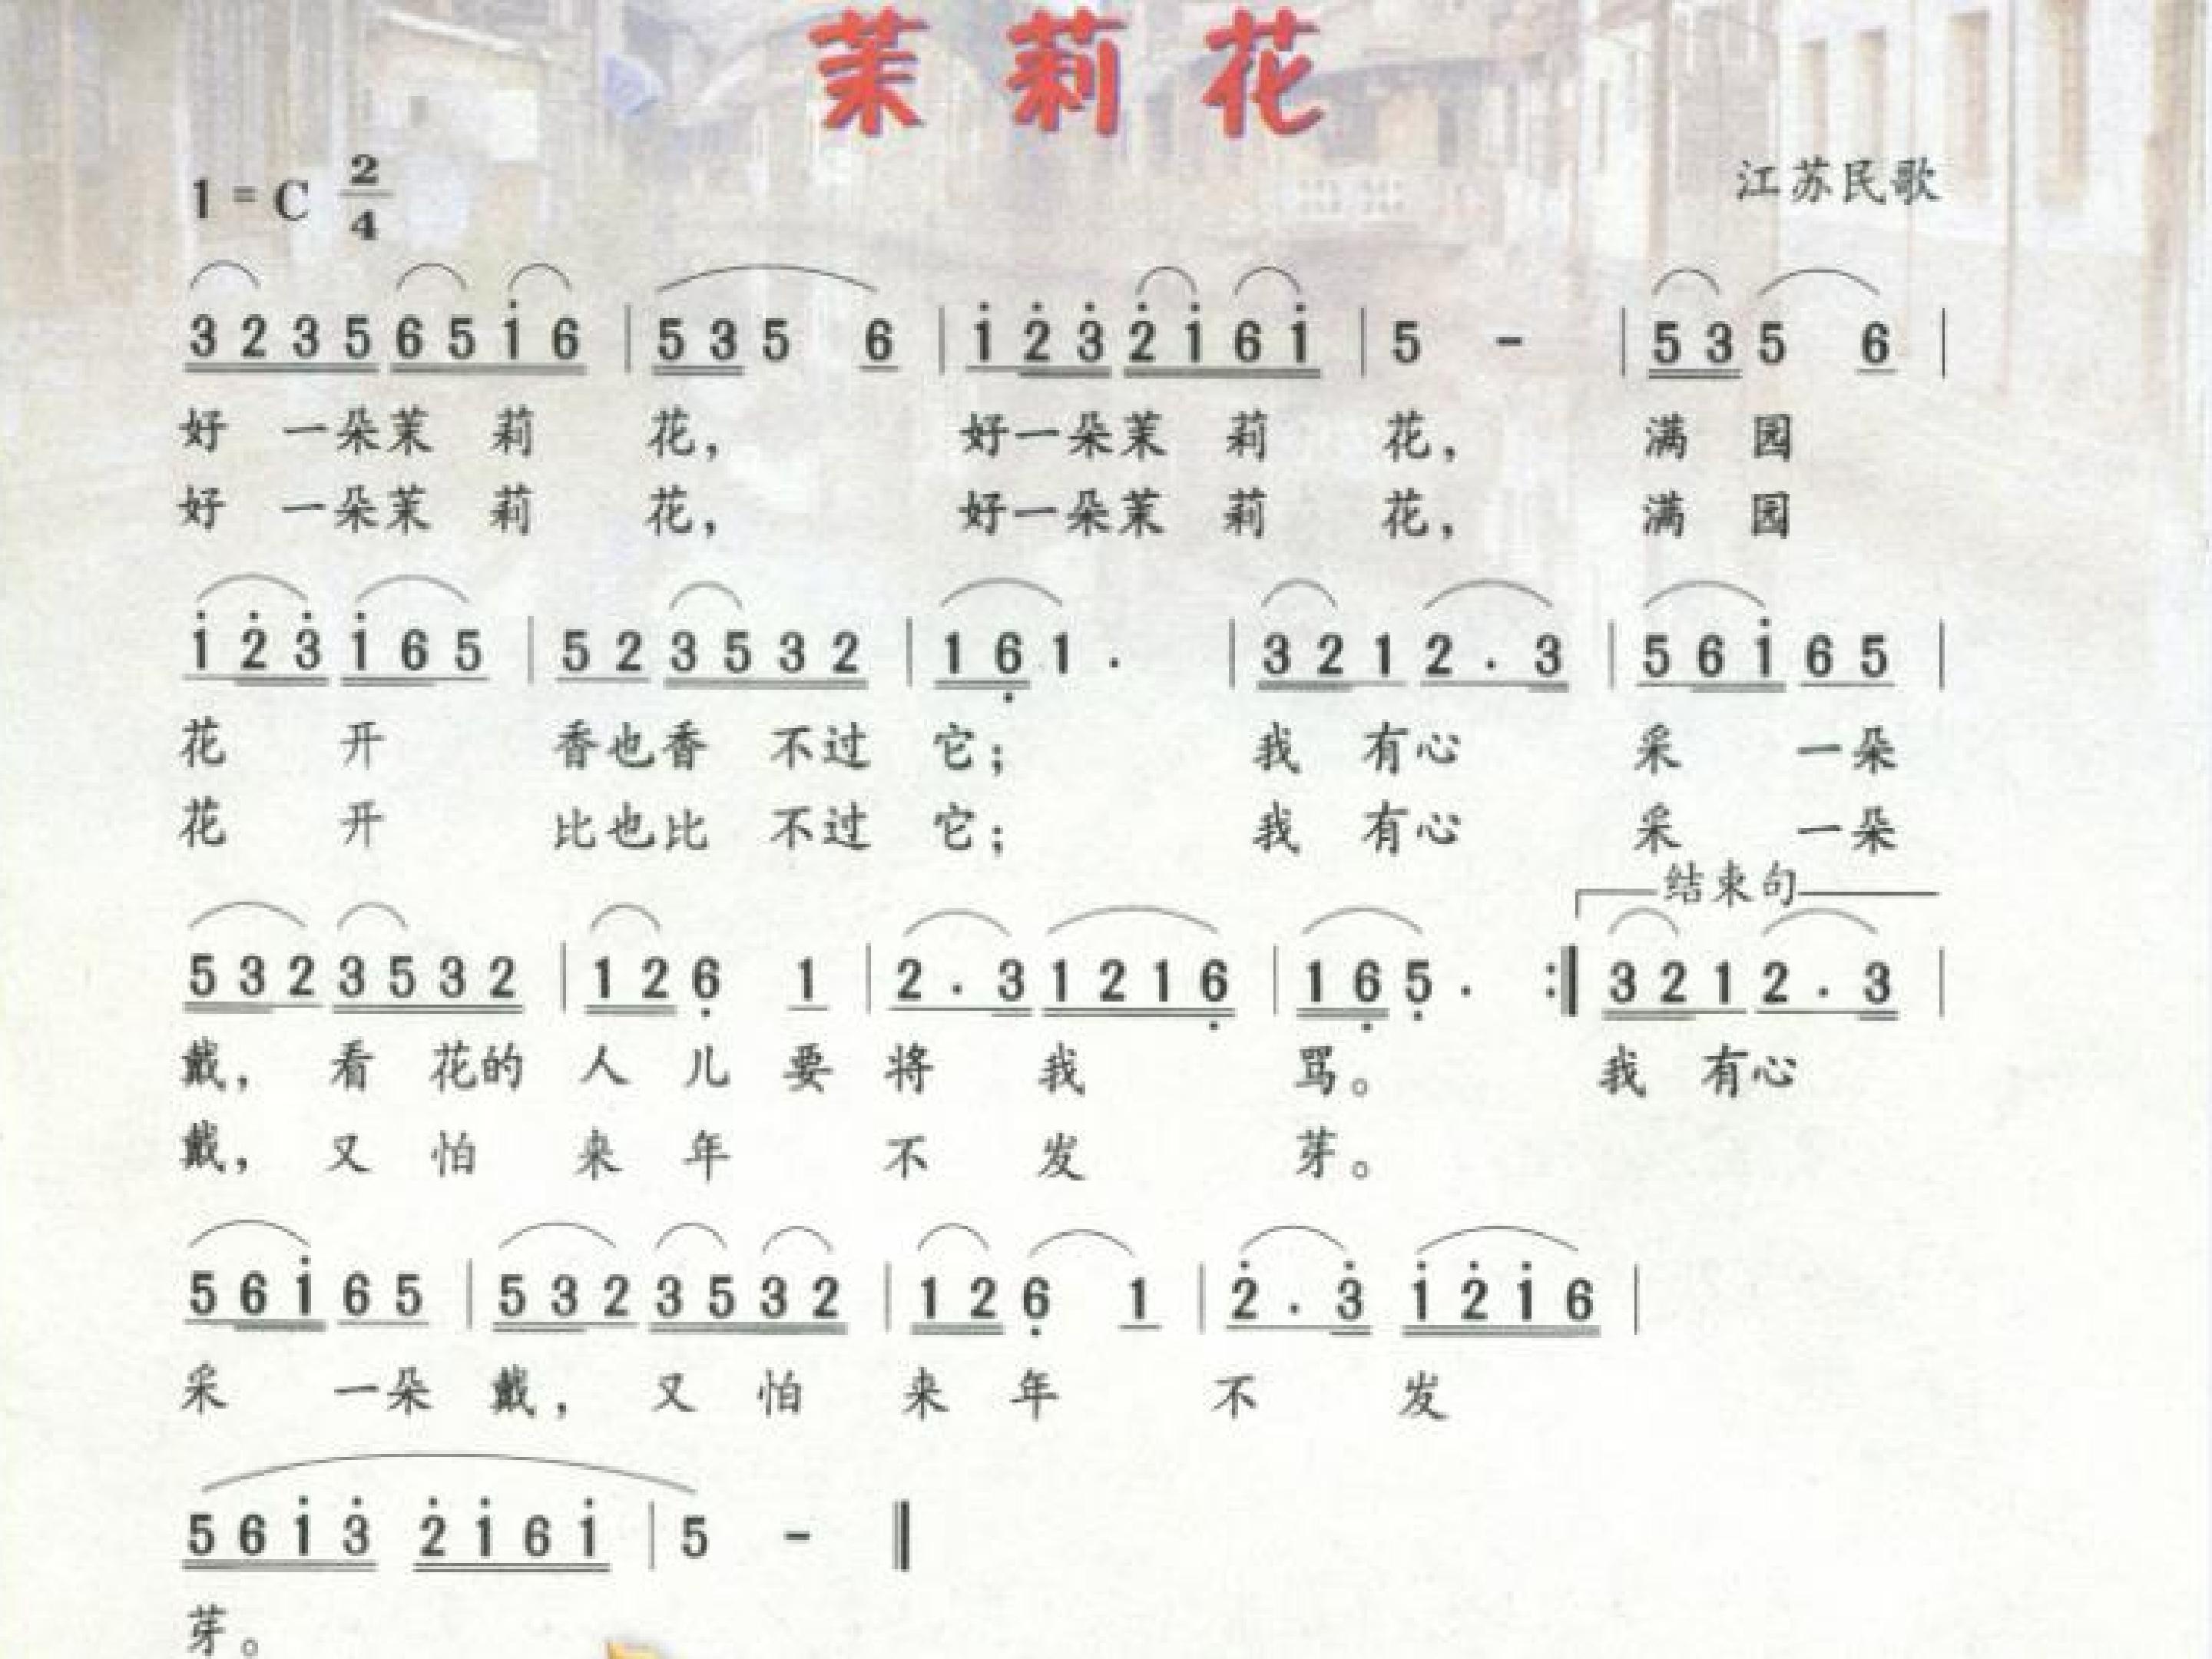 茉莉花
1=C 2/4
江苏民歌
3 2 3 5 6 5 i 6 | 5 3 5 6 | i 2̇ 3̇ 2̇ i 6 i | 5 - | 5 3 5 6 |
好 一朵茉 莉 花， 好一朵茉 莉 花， 满 园
好 一朵茉 莉 花， 好一朵茉 莉 花， 满 园
i 2̇ 3̇ i 6 5 | 5 2 3 5 3 2 | 1 6̣ 1 . | 3 2 1 2 . 3 | 5 6 i 6 5 |
花 开 香也香 不过 它； 我 有心 采 一朵
花 开 比也比 不过 它； 我 有心 采 一朵
结束句
5 3 2 3 5 3 2 | 1 2 6̣ 1 | 2 . 3 1 2 1 6̣ | 1 6̣ 5̣ . :‖ 3 2 1 2 . 3 |
戴， 看 花的 人 儿 要 将 我 骂。 我 有心
戴， 又 怕 来 年 不 发 芽。
5 6 i 6 5 | 5 3 2 3 5 3 2 | 1 2 6̣ 1 | 2̇ . 3̇ i 2̇ i 6 |
采 一朵 戴， 又 怕 来 年 不 发
5 6 i 3̇ 2̇ i 6 i | 5 - ‖
芽。